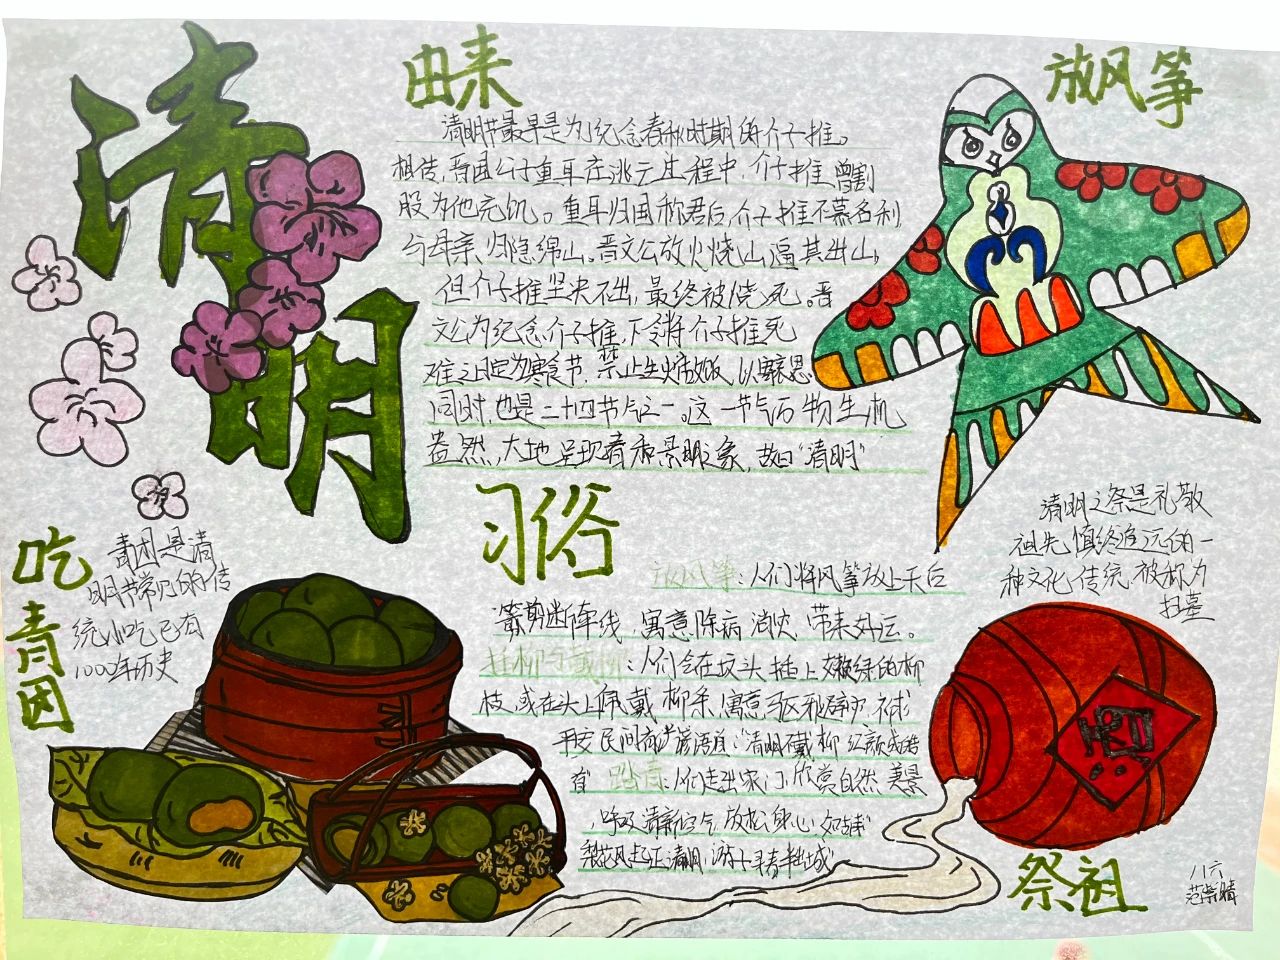 清明
由来
清明节最早是为了纪念春秋时期的介子推。
相传,晋国公子重耳在逃亡生程中,介子推曾割
股为他充饥。重耳归国称君后,介子推不慕名利,
与母亲归隐绵山。晋文公放火烧山逼其出山,
但介子推坚决不出,最终被烧死。晋
文公为纪念介子推,下令将介子推死
难之日定为寒食节,禁止生火做饭,以寄哀思
同时,也是二十四节气之一。这一节气万物生机
盎然,大地呈现春和景明之象,故曰“清明”
放风筝
习俗
放风筝:人们将风筝放上天后
剪断牵线,寓意除病消灾,带来好运。
插柳与戴柳:人们会在坟头插上嫩绿的柳
枝,或在头上佩戴柳条,寓意驱邪辟,祈求
平安民间有谚语道:“清明不戴柳红颜成皓
首 踏青:人们走出家门,欣赏自然美景
呼吸清新空气放松身心 如
梨花风起正清明,游子寻春半出城
吃青团
青团是清
明节常见的传
统小吃已有
1000年历史
清明之祭是礼敬
祖先,慎终追远的一
种文化传统,被称为
扫墓
祭祖
八六